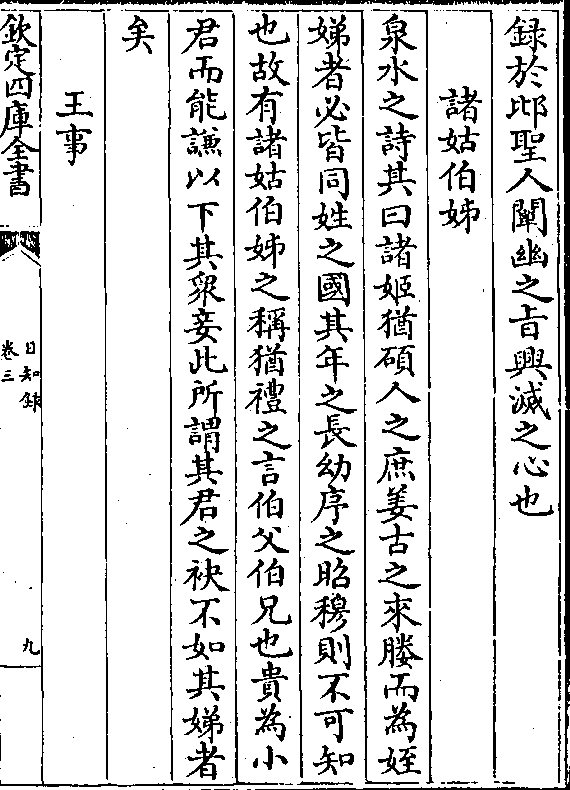 録於邶聖人闡幽之㫖興滅之心也
諸姑伯姊
泉水之詩其曰諸姬猶碩人之庶姜古之來媵而為姪
娣者必皆同姓之國其年之長幼序之昭穆則不可知
也故有諸姑伯姊之稱猶禮之言伯父伯兄也貴為小
君而能謙以下其衆妾此所謂其君之袂不如其娣者
矣
王事
欽定四庫全書
日知録
卷三
九